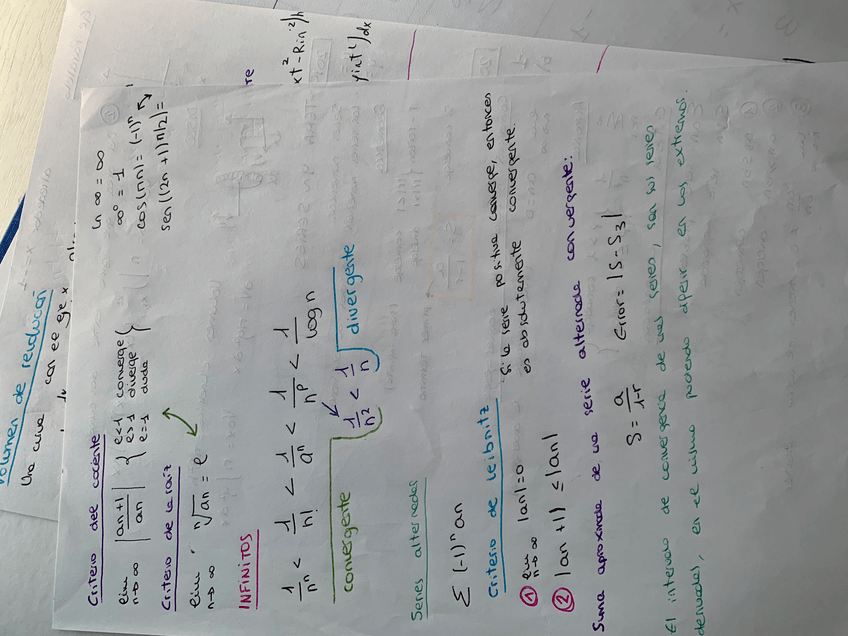 Volumen de revolución
Una curva con el eje x
Criterio del cociente
lim n→∞ |an+1 / an| { l<1 converge
l>1 diverge
l=1 duda
Criterio de la raíz
lim n→∞ ⁿ√an = l
ln ∞ = ∞
∞⁰ = 1
cos(πn) = (-1)ⁿ
sen((2n+1)π/2) =
INFINITOS
1/nⁿ < 1/n! < 1/aⁿ < 1/nᵖ < 1/log n
1/n² < 1/n
convergente
divergente
Series alternadas
Σ (-1)ⁿ an
Criterio de Leibnitz
① lim n→∞ |an| = 0
② |an+1| ≤ |an|
Si la serie positiva converge, entonces
es absolutamente convergente.
Suma aproximada de una serie alternada convergente:
S = a/1-r
Error = |S - S₃|
El intervalo de convergencia de unas series, son sus series
derivadas, es el mismo pudiendo diferir en los extremos.